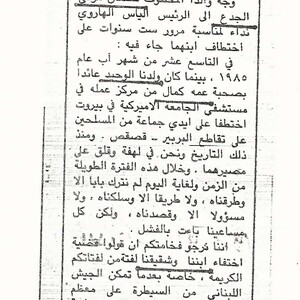 وجه والدا المخطوف
الجدع الى الرئيس الياس الهراوي
نداء لمناسبة مرور ست سنوات على
اختطاف ابنهما جاء فيه :
في التاسع عشر من شهر آب عام
١٩٨٥ ، بينما كان ولدنا الوحيد عائدا
بصحبة عمه كمال من مركز عمله في
مستشفى الجامعة الاميركية في بيروت
اختطفا على ايدي جماعة من المسلحين
على تقاطع البربير - قصقص . ومنذ
ذلك التاريخ ونحن في لهفة وقلق على
مصيرهما . وخلال هذه الفترة الطويلة
من الزمن ولغاية اليوم لم نترك بابا الا
وطرقناه ، ولا طريقا الا وسلكناه ، ولا
مسؤولا الا وقصدناه ، ولكن كل
مساعينا باءت بالفشل .
اننا نرجو فخامتكم ان تولوا قضية
اختفاء ابننا وشقيقنا لفتة من لفتاتكم
الكريمة ، خاصة بعدما تمكن الجيش
اللبناني من السيطرة على معظم